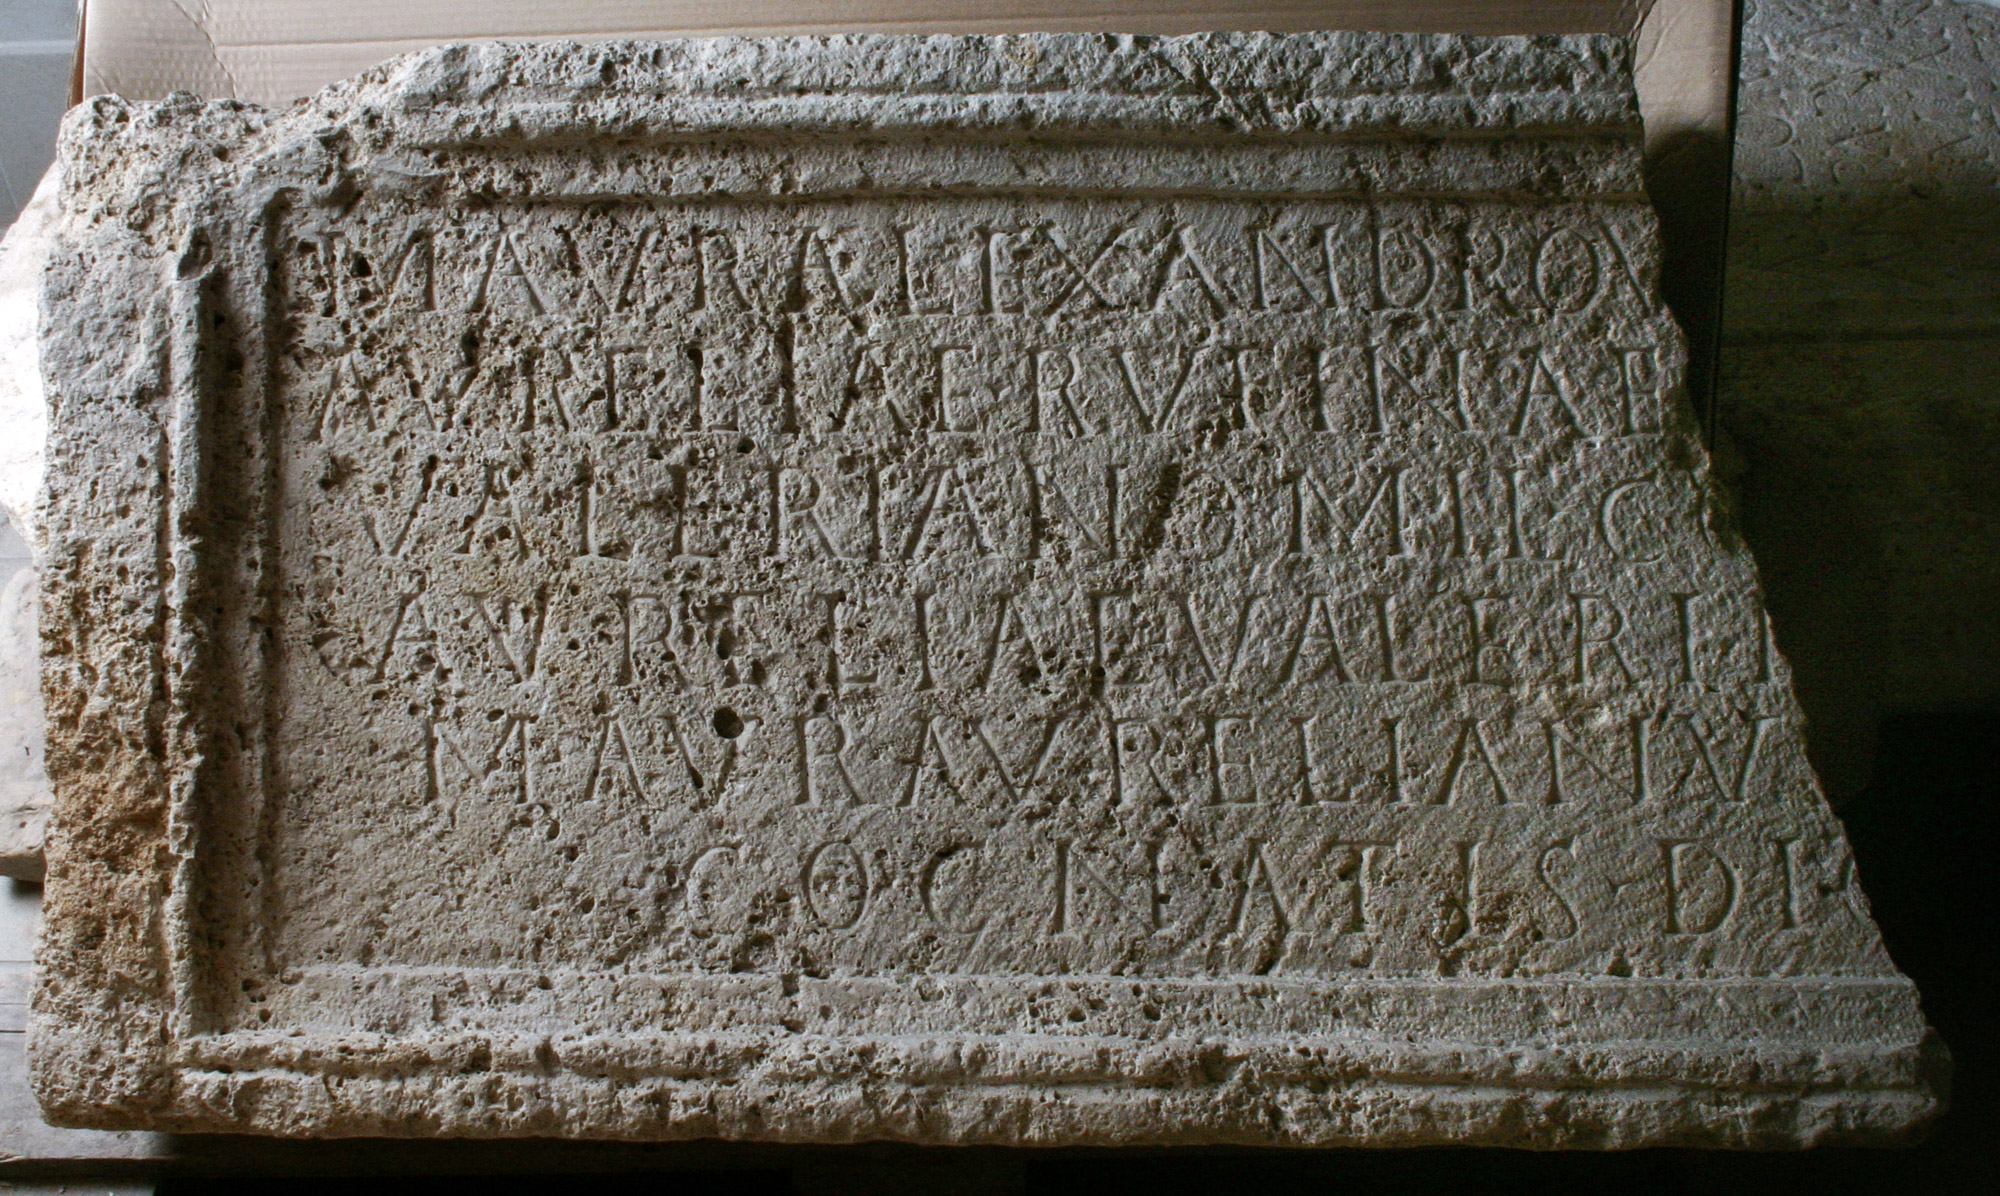 M AVR ALEXANDRO V
AVRELIAE RVFINAE
VALERIANO MIL C
AVRELIAE VALERII
M AVR AVRELIANV
COGNATIS DI